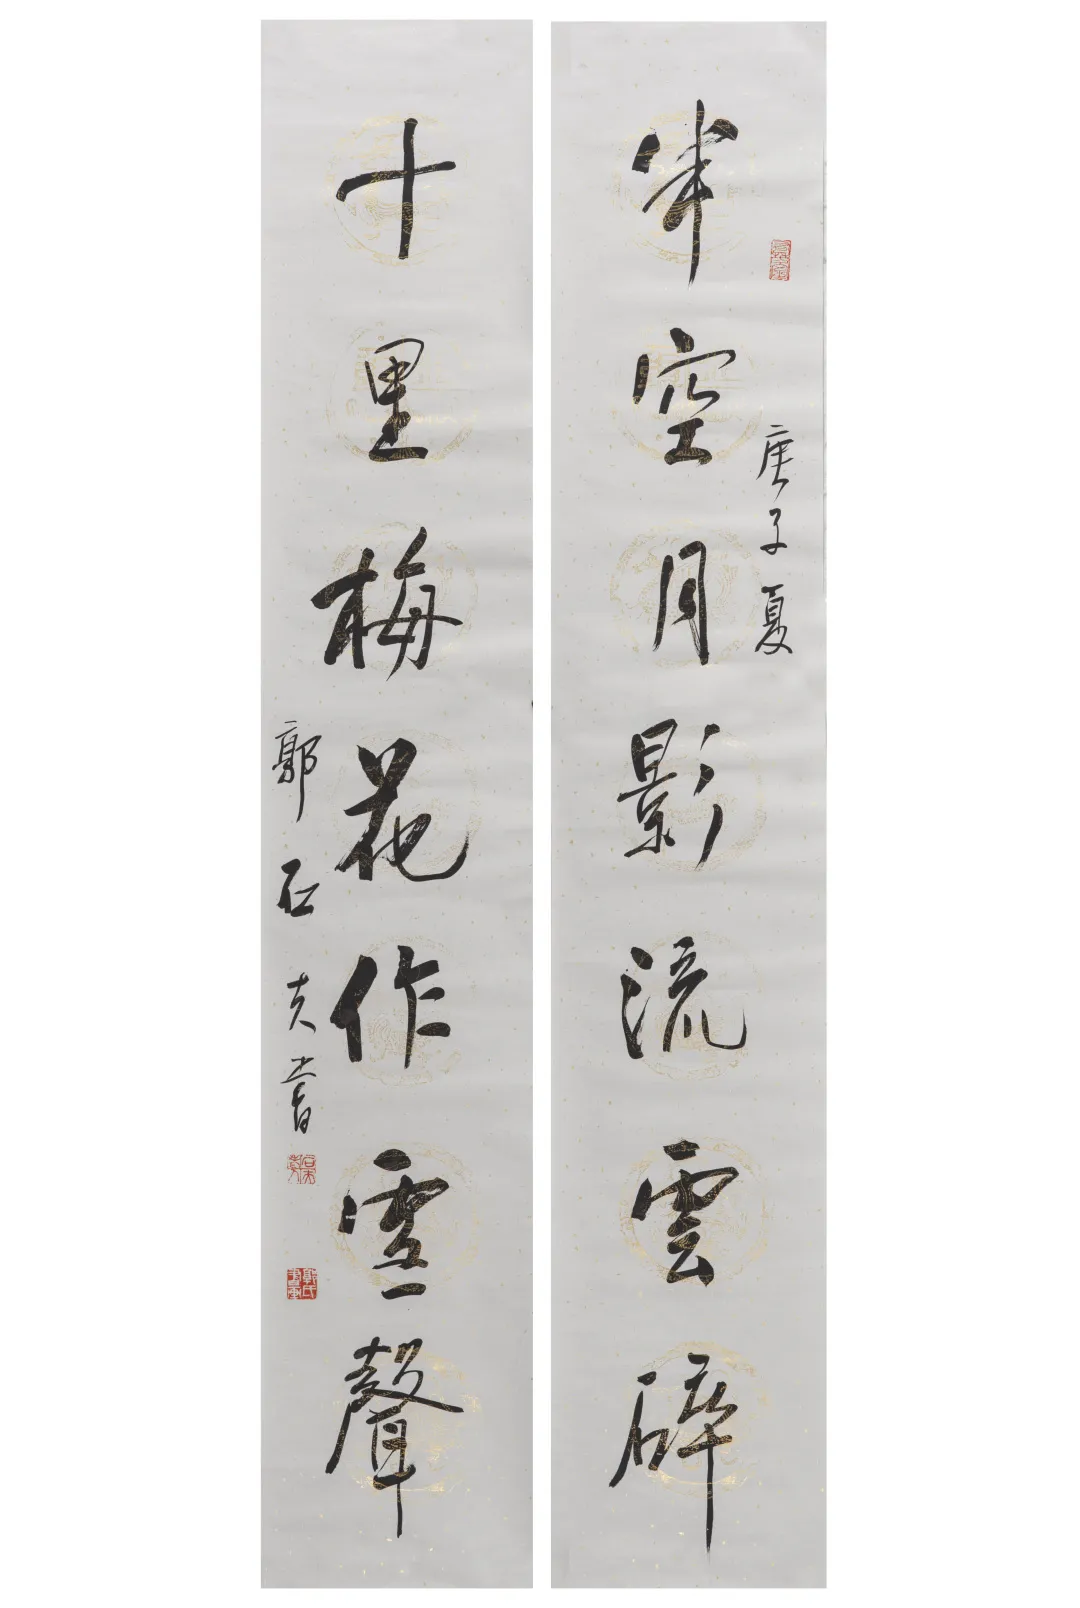 庚子夏
半空月影流雲碎
十里梅花作雪聲
郭石夫書